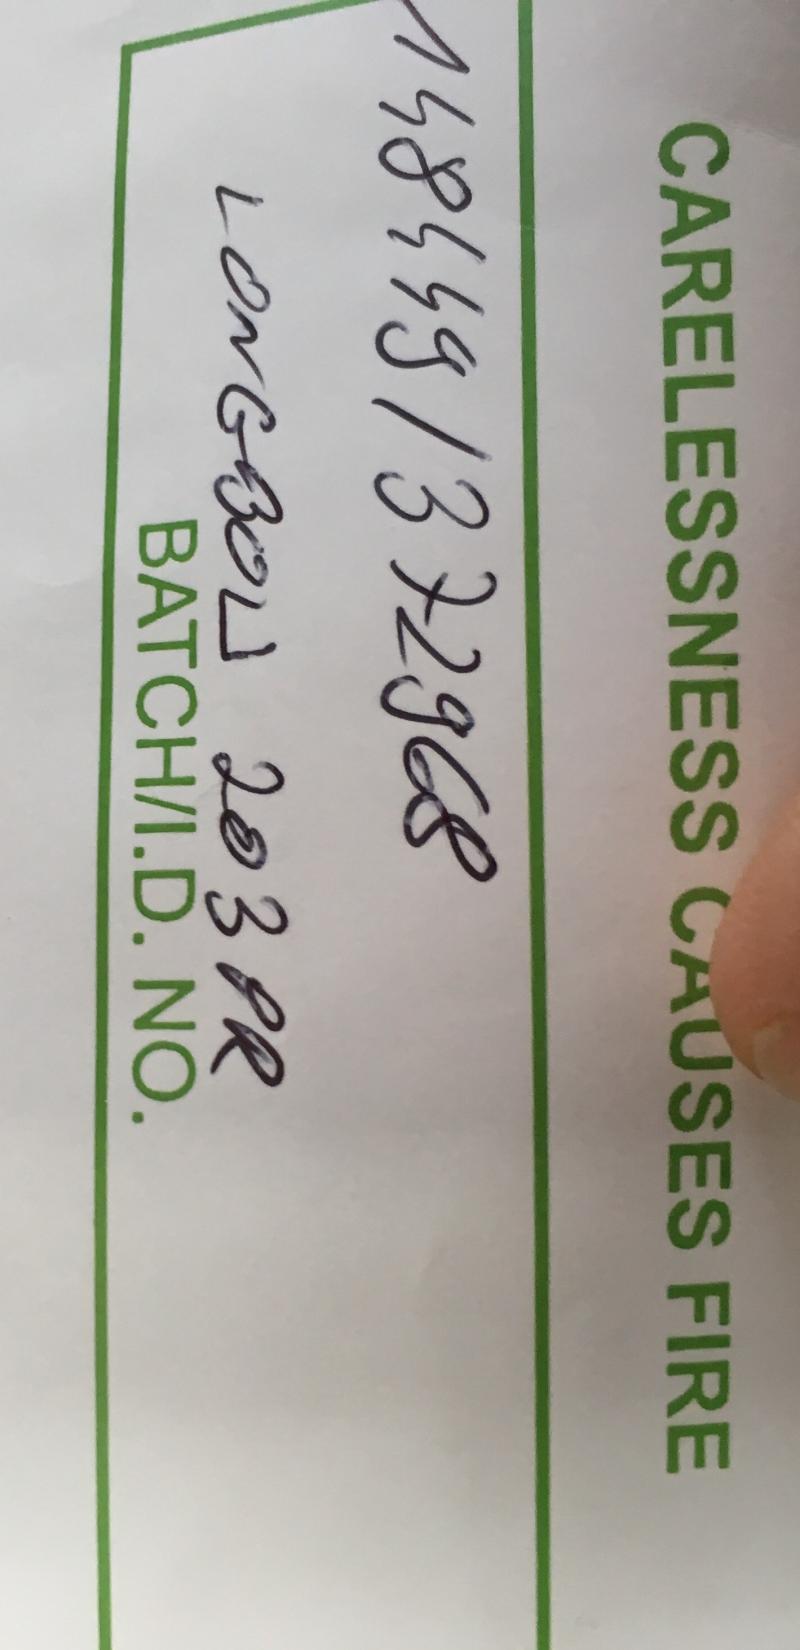 CARELESSNESS CAUSES FIRE
148449/3 72968
LONGBOW 203PR
BATCH/I.D. NO.